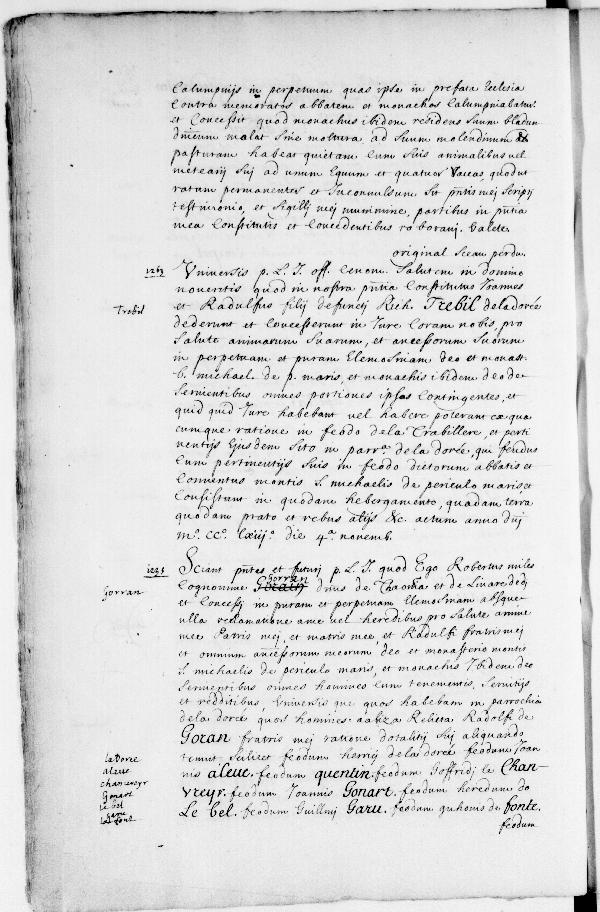 Calumpnijs in perpetuum quas ipse in prefata Eclesia
Contra memoratos abbatem et monachos Calumpniabatur.
et Concessit quod monachus ibidem residens suum bladum
dnicum malat sine moltura ad suum molendinum &
pasturam habeat quietam cum suis animalibus vel
metearij sui ad unum Equum et quatuor Vaccas, quod ut
ratum permanentes et Inconvulsum sit pntis mej Scripti
testimonio, et Sigillj mej munimine, partibus in pntia
mea Constitutis et Concedentibus roboravj. Valete.
original Sceau perdu.
1263
Vniversis p. L. J. off. Cenom. Salutem in domino
noveritis quod in nostra pntia Constitutus Ioannes
Trebil
et Radulfus filij defuncti Rich. Trebil de la dorée
dederunt et Concesserunt in Jure Coram nobis, pro
Salute animarum Suarum, et ancessorum Suorum
in perpetuam et puram Elemosinam deo et monast.
b. michael. de p. maris, et monachis ibidem deo de
Servientibus omnes portiones ipsos Contingentes, et
quid quid Jure habebant vel habere poterant ex qua
cumque ratione in feodo de la Trabillere, et perti
nentijs Ejusdem Sito in parra. de la dorée, qui feodus
Cum pertinentijs suis in feodo dictorum abbatis et
Conventus montis s. michaelis de periculo maris, et
Consistant in quodam hebergamento, quadam terra
quodam prato et rebus alijs &c. actum anno dnj
mo. CCo. lxiijo. die 4a. novemb.
1225
Sciant pntes et futurj p. L. J. quod Ego Robertus miles
Gorran
Cognomine Gorran dnus de Thaoma et de Livare dedj
et Concessj in puram et perpetuam Elemosinam absque
ulla reclamatione a me vel heredibus pro Salute anime
mee Patris mej, et matris mee, et Radulfi fratris mej
et omnium ancessorum meorum deo et monasterio montis
s. michaelis de periculo maris, et monachis Ibidem deo
Servientibus omnes homines cum tenementis, Servitijs
et redditibus, Vniversis que quos habebam in parrochia
de la dorée quos homines Relicta Radolfi de
Goran fratris mej ratione dotalitij suj aliquando
La Dorée
tenuit scilicet feodum herricj de la dorée feodum Joan
aleuc
nis aleuc. feodum quentin. feodum Goffridj le Chan-
chanvreyr
vreyr. feodum Joannis Gonart. feodum heredum do
Gonart
Le bel. feodum Guillmj Garu. feodum quhomo de fonte.
Le bel
Garu
la font
feodum